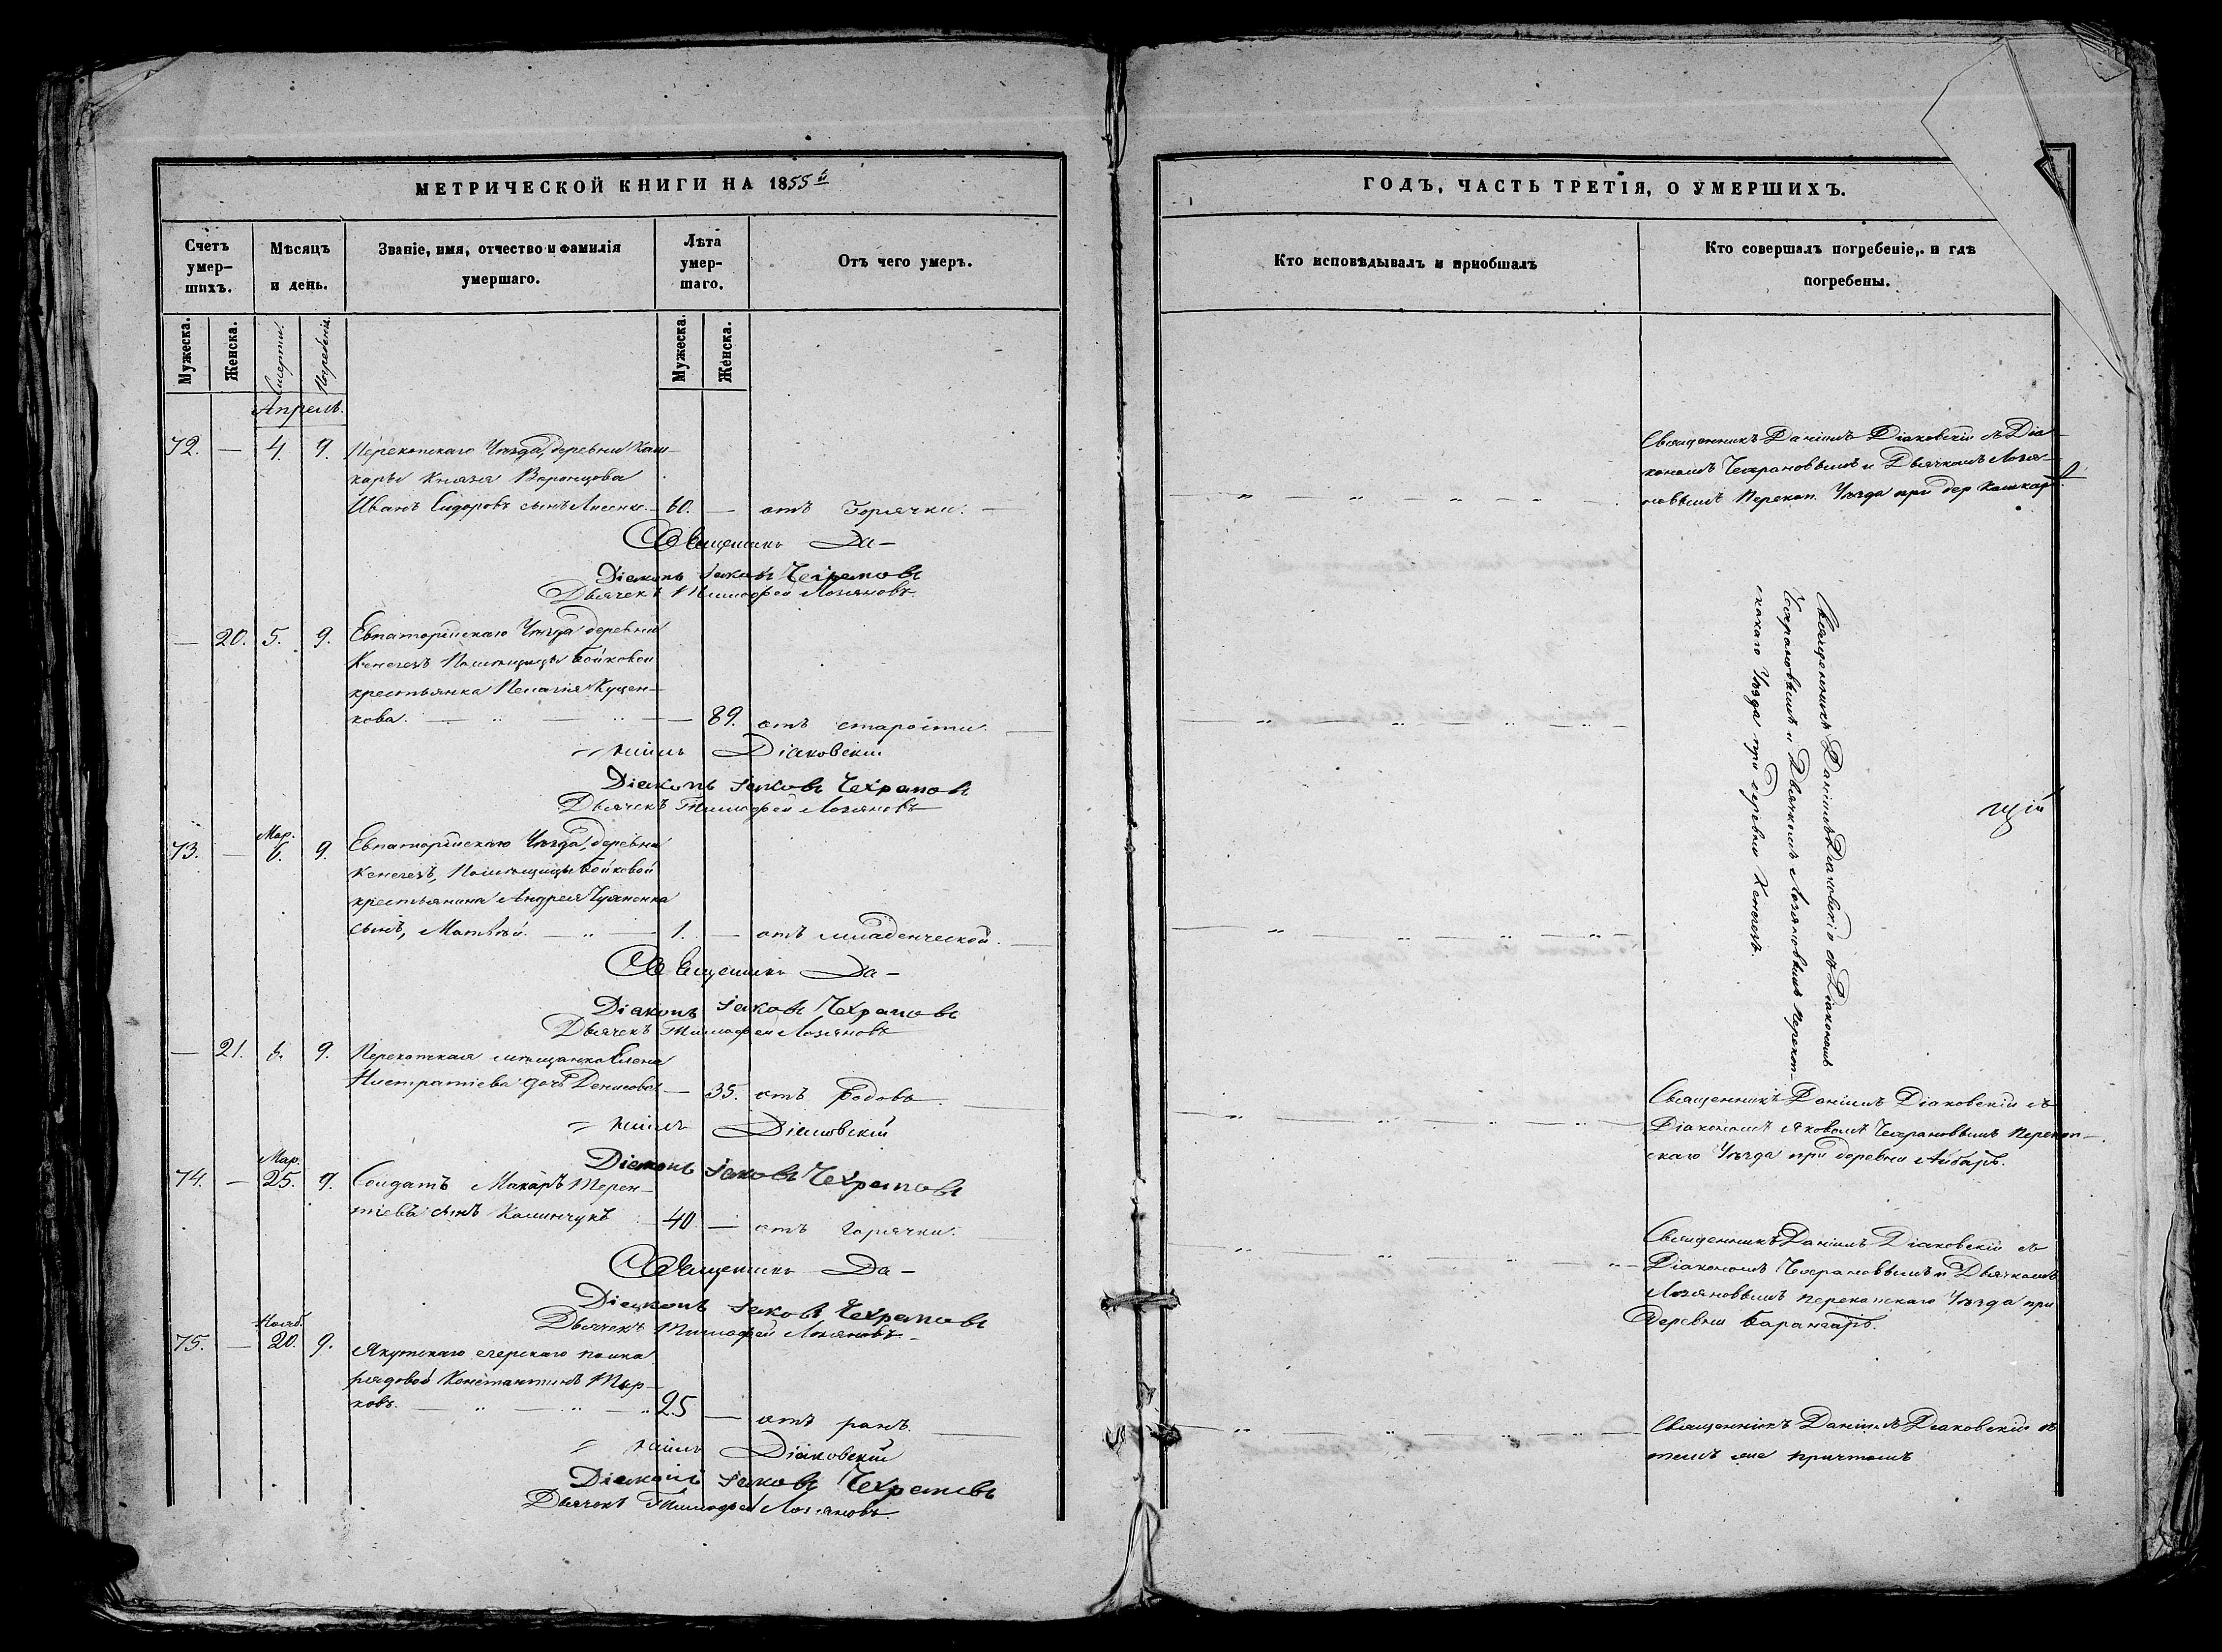 МЕТРИЧЕСКОЙ КНИГИ НА 1855й
Счетъ умер-шихъ.
Мѣсяцъ и день.
Званіе, имя, отчество и фамилія умершаго.
Лѣта умер-шаго.
Отъ чего умеръ.
Мужеска.
Женска.
Смерти.
Погребенія.
Мужеска.
Женска.
Апрель.
72. — 4. 9. Перекопскаго Уѣзда, деревни Каш-
кары Князя Воронцова
Иванъ Сидоровъ сынъ Лисенко. — 60. — отъ Горячки. —
Священникъ Да-
Діаконъ Іаковъ Чехрановъ
Дьячекъ Тимофей Лозяновъ
— 20. 5. 9. Евпаторійскаго Уѣзда деревни
Кенегезъ Помѣщицы Бойковой
крестьянка Пелагія Куцен-
кова. — „ — „ — — 89. отъ старости. —
= ніилъ Діаковскій
Діаконъ Іаковъ Чехрановъ
Дьячекъ Тимофей Лозяновъ
73. — Мар. 6. 9. Евпаторійскаго Уѣзда, деревни
Кенегезъ, Помѣщицы Бойковой
крестьянина Андрея
сынъ, Матѳей. — „ — 1. — отъ младенческой. —
Священникъ Да-
Діаконъ Іаковъ Чехрановъ
Дьячекъ Тимофей Лозяновъ
— 21. 6. 9. Перекопская мѣщанка Елена
Калистратіева дочь Денисова — 35. отъ родовъ. —
= ніилъ Діаковскій
Діаконъ Іаковъ Чехрановъ
74. — Мар. 25. 9. Солдатъ Макаръ Терен-
тіевъ сынъ Калинчукъ — 40 — отъ горячки.
Священникъ Да-
Діаконъ Іаковъ Чехрановъ
Дьячекъ Тимофей Лозяновъ
75. — Нояб. 20. 9. Якутскаго егерскаго полка
рядовой Константинъ Мар-
ковъ. — „ — „ — „ 25 — отъ ранъ. —
= ніилъ Діаковскій
Діаконъ Іаковъ Чехрановъ
Дьячекъ Тимофей Лозяновъ
ГОДЪ, ЧАСТЬ ТРЕТІЯ, О УМЕРШИХЪ.
Кто исповѣдывалъ и пріобщалъ
Кто совершалъ погребеніе, и гдѣ погребены.
Священникъ Даніилъ Діаковскій съ Діа-
кономъ Чехрановымъ и Дьячкомъ Лозя-
новымъ Перекоп. Уѣзда при дер Кашкары.
Священникъ Даніилъ Діаковскій съ Діакономъ
Чехрановымъ и Дьячкомъ Лозяновымъ Перекоп-
скаго Уѣзда при деревни Кенегезъ.
щій
Священникъ Даніилъ Діаковскій съ
Діакономъ Яковомъ Чехрановымъ Перекоп-
скаго Уѣзда при деревни Айбаръ.
Священникъ Даніилъ Діаковскій съ
Діакономъ Чехрановымъ и Дьячкомъ
Лозяновымъ Перекопскаго Уѣзда при
деревни Барангаръ.
Священникъ Даніилъ Діаковскій съ
темъ же причтомъ